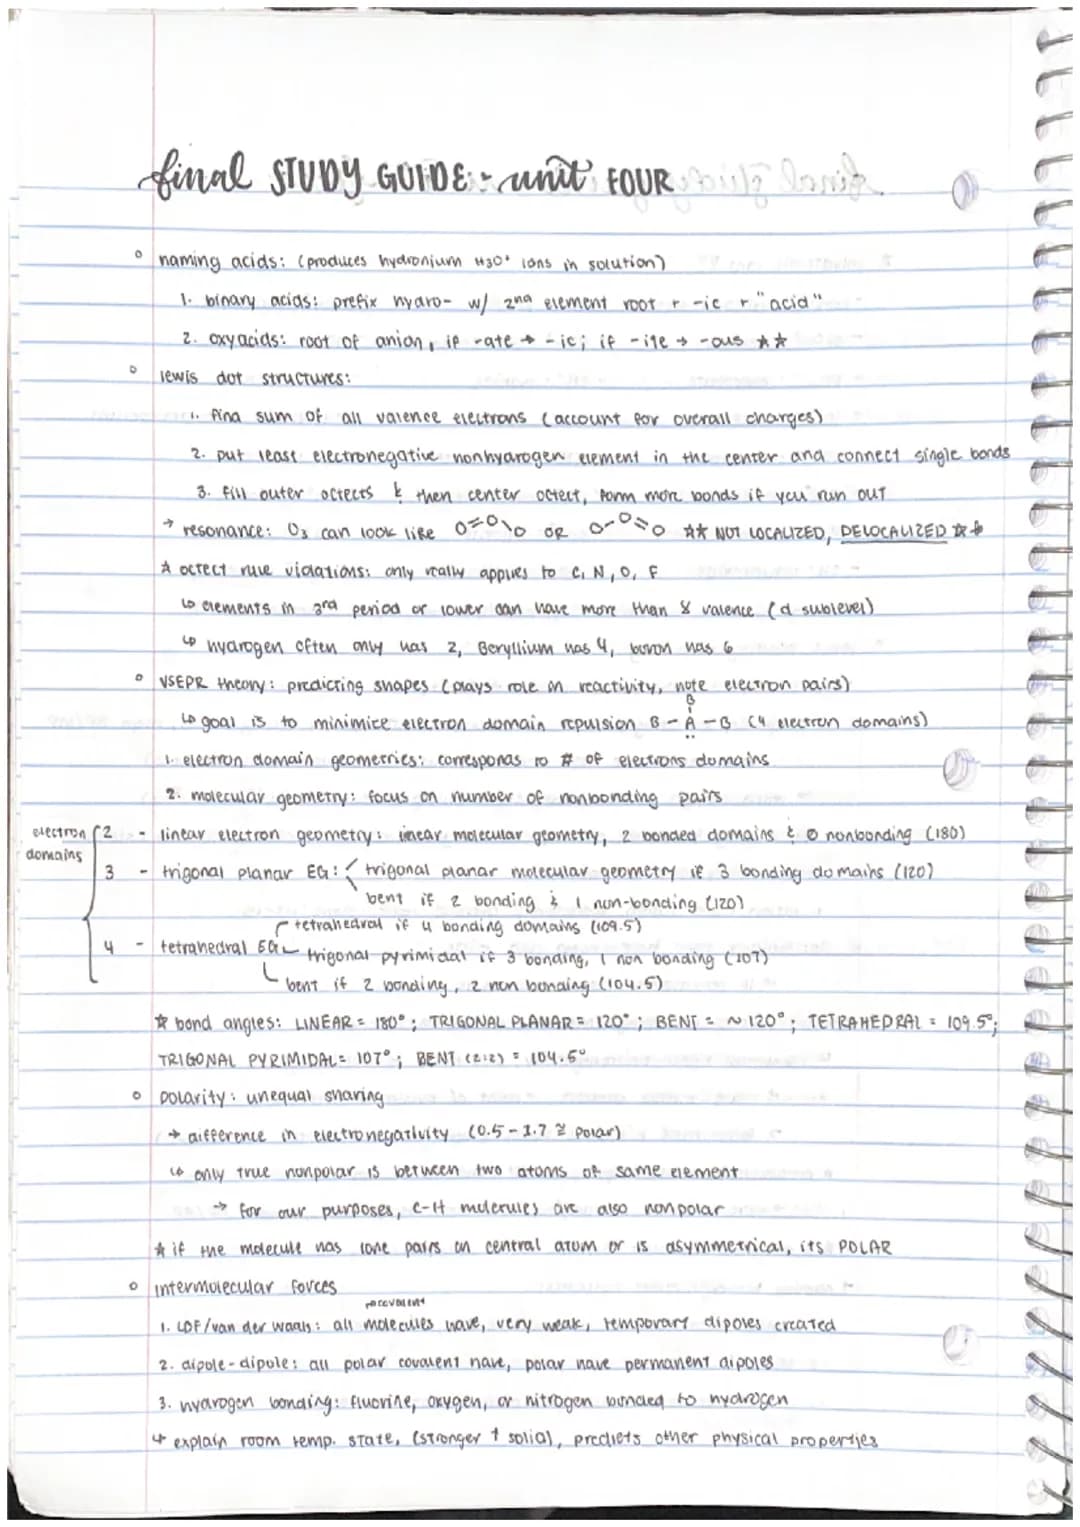 final STUDY GUIDE:- unit FOUR
° naming acids: (produces hydronium H3O+ ions in solution)
1. binary acids: prefix hydro- w/ 2nd element root + -ic + "acid"
2. oxyacids: root of anion, if -ate → -ic; if -ite → -ous ☆☆
° lewis dot structures:
1. find sum of all valence electrons (account for overall charges)
2. put least electronegative nonhydrogen element in the center and connect single bonds
3. fill outer octects & then center octect, form more bonds if you run out
→ resonance: O3 can look like O=O\O OR O-O=O ☆☆ NOT LOCALIZED, DELOCALIZED ☆☆
☆ octect rule violations: only really applies to C, N, O, F
↳ elements in 3rd period or lower can have more than 8 valence (d sublevel)
↳ hydrogen often only has 2, Beryllium has 4, boron has 6
° VSEPR theory: predicting shapes (plays role in reactivity, note electron pairs)
B
↳ goal is to minimize electron domain repulsion B-A-B (4 electron domains)
1. electron domain geometries: corresponds to # of electrons domains
2. molecular geometry: focus on number of nonbonding pairs
electron domains
2 - linear electron geometry: linear molecular geometry, 2 bonded domains & 0 nonbonding (180)
3 - trigonal planar EG: trigonal planar molecular geometry if 3 bonding domains (120)
bent if 2 bonding & 1 non-bonding (120)
tetrahedral if 4 bonding domains (109.5)
4 - tetrahedral EG trigonal pyrimidal if 3 bonding, 1 non bonding (107)
bent if 2 bonding, 2 non bonding (104.5)
☆ bond angles: LINEAR = 180°; TRIGONAL PLANAR = 120°; BENT = ~120°; TETRAHEDRAL = 109.5°;
TRIGONAL PYRIMIDAL = 107°; BENT (2:2) = 104.5°
° polarity: unequal sharing
→ difference in electronegativity (0.5-1.7 ≅ polar)
↳ only true nonpolar is between two atoms of same element
→ for our purposes, C-H molecules are also nonpolar
☆ if the molecule has lone pairs on central atom or is asymmetrical, its POLAR
° intermolecular forces
1. LDF/van der waals: all molecules have, very weak, temporary dipoles created
2. dipole-dipole: all polar covalent have, polar have permanent dipoles
3. hydrogen bonding: fluorine, oxygen, or nitrogen bonded to hydrogen
↳ explain room temp. state, (stronger ↑ solid), predicts other physical properties